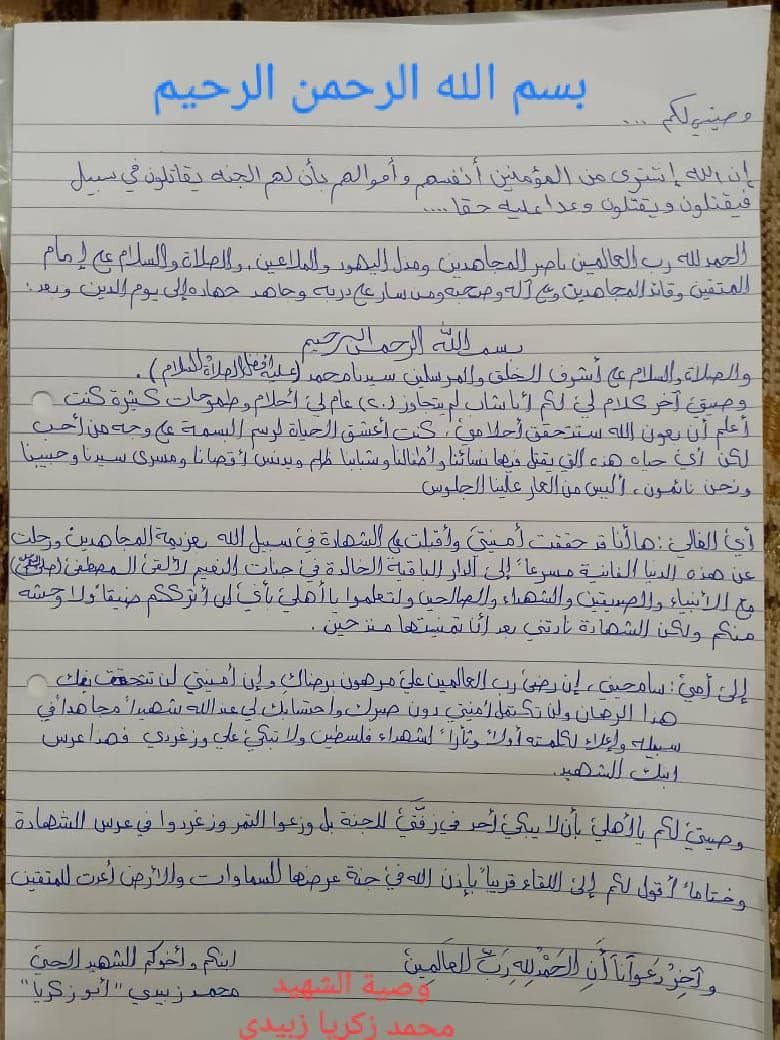 بسم الله الرحمن الرحيم
وصيتي لكم ...
إن الله إشترى من المؤمنين أنفسهم وأموالهم بأن لهم الجنه يقاتلون في سبيل
فيقتلون ويقتلون وعدا عليه حقا....
الحمد لله رب العالمين ناصر المجاهدين ومذل اليهود والملاعين، والصلاة والسلام على إمام
المتقين وقائد المجاهدين وعلى آله وصحبه ومن سار على دربه وجاهد جهاده إلى يوم الدين وبعد:
بسم الله الرحمن الرحيم
والصلاة والسلام على أشرف الخلق والمرسلين سيدنا محمد (عليه أفضل الصلاة والسلام).
وصيتي آخر كلام لي لكم أنا شاب لم يتجاوز (٢٠) عام لي أحلام وطموحات كثيرة كنت
أعلم أن بعون الله ستتحقق أحلامي، كنت أعشق الحياة لرسم البسمة على وجه من أحب
لكن أي حياه هذه التي يقتل فيها نسائنا وأطفالنا وشبابنا ظلم ويدنس أقصانا ومسرى سيدنا وحبيبنا
ونحن نائمون، أليس من العار علينا الجلوس
أي الغالي: ها أنا قد حققت أمنيتي وأقبلت على الشهادة في سبيل الله بعزيمة المجاهدين ورحلت
عن هذه الدنيا الفانية مسرعاً إلى الدار الباقية الخالدة في جنات النعيم لألقى المصطفى (صلى الله عليه وسلم)
مع الأنبياء والصديقين والشهداء والصالحين ولتعلموا يا أهلي بأني لن أترككم ضيقاً ولا وحشه
منكم ولكن الشهادة نادتني بعد أنا تمنيتها منذ حين.
إلى أمي: سامحيني، إن رضى رب العالمين علي مرهون برضاكِ وإن أمنيتي لن تتحقق بفك
هذا الرهان ولن تكتمل أمنيتي دون صبرك واحتسابك لي عند الله شهيداً مجاهداً في
سبيله وإعلاء لكلمته أولاً وثأراً لشهداء فلسطين ولا تبكي علي وزغردي فهذا عرس
ابنك الشهيد.
وصيتي لكم يا أهلي بأن لا يبكي أحد في زفتي للجنة بل وزعوا التمر وزغردوا في عرس الشهادة
وختاماً أقول لكم إلى اللقاء قريباً بإذن الله في جنة عرضها السماوات والأرض أعدت للمتقين
وَآخِرُ دَعْوَانَا أَنِ الْحَمْدُ لِلهِ رَبِّ الْعَالَمِينَ
ابنكم وأخوكم الشهيد الحي
محمد زبيدي "أبو زكريا"
وصية الشهيد
محمد زكريا زبيدي